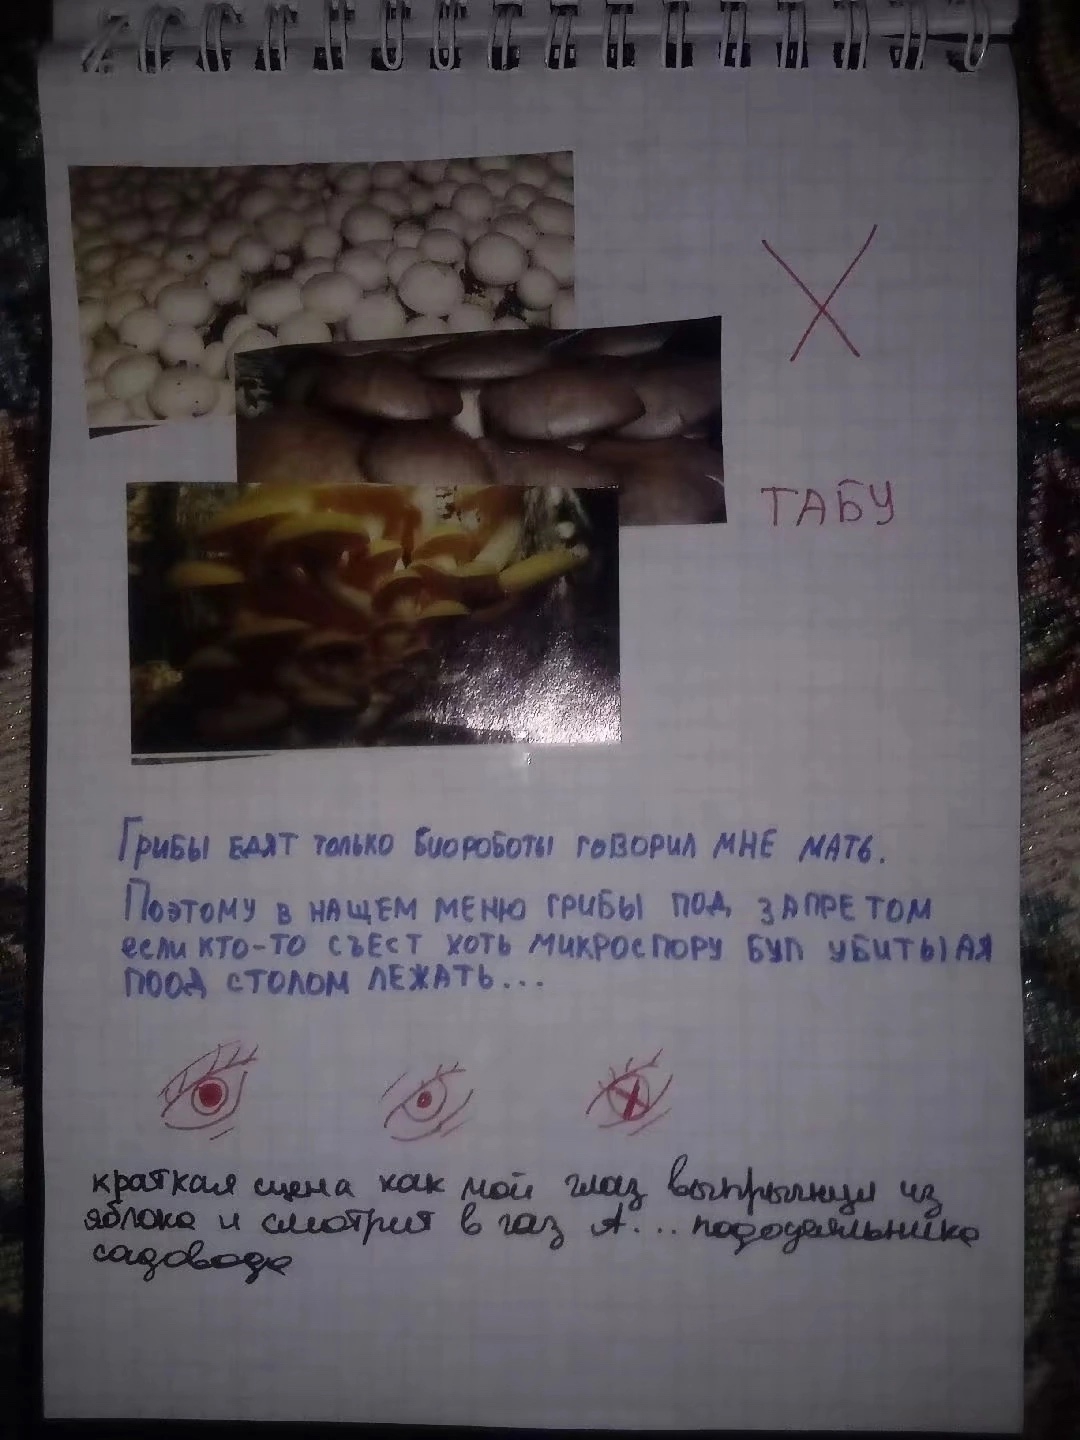 ТАБУ
Грибы едят только биороботы говорил мне мать.
Поэтому в нащем меню грибы под запретом
если кто-то съест хоть микроспору буп убитыая
поод столом лежать...
краткая сцена как мой глаз выпрыгнул из
яблока и смотрит в газ А... пододеяльника
садовода